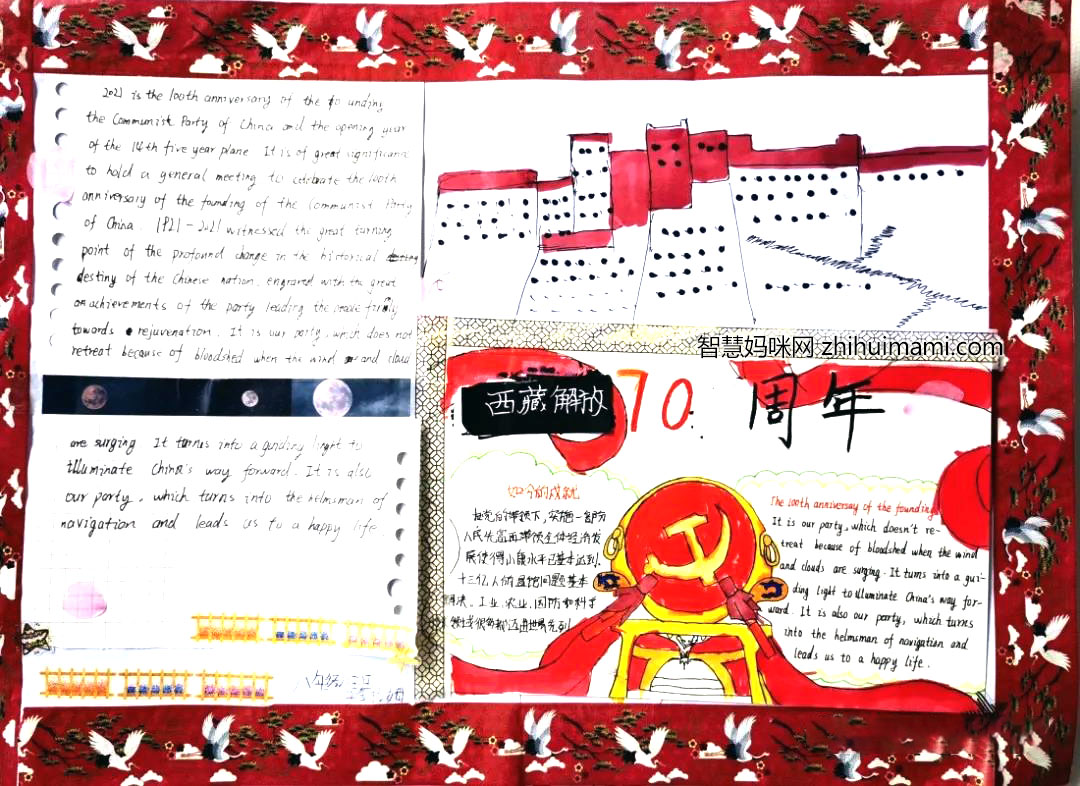 2021 is the 100th anniversary of the fo unding
the Communist Party of China and the opening year
of the 14th five year plane It is of great significance
to hold a general meeting to celebrate the 100th
anniversary of the founding of the Communist Party
of China. 1921-2021 witnessed the great turning
point of the profound change in the historical
destiny of the Chinese nation, engraved with the great
achievements of the party leading the
towards rejuvenation. It is our party, which does not
retreat because of bloodshed when the wind and cloud
are surging It turns into a guiding light to
illuminate China's way forward. It is also
our party, which turns into the helmsman of
navigation and leads us to a happy life
智慧妈咪网 zhihuimami.com
西藏解放70周年
如今的成就
在党的带领下,实施一部分
人民先富而带领全体经济发
展使得小康水平已基本达到.
十三亿人的温饱问题基本
解决.工业,农业,国防和科学
The 100th anniversay of the founding
It is our party, which doesn't re-
treat because of bloodshed when the wind
and clouds are surging. It turns into a gui-
ding light to illuminate China's way for-
ward. It is also our party, which turns
into the helmsman of navigation and
leads us to a happy life.